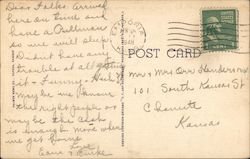 Dear Folks. Arrived
here on time and
have a Pullman
so we will sleep.
Didn't have any
trouble at all getting
it - Funny - Huh?
May be we know
the right people or
may be the cash
is enough more when
we get home.
Love
POST CARD
Mr & Mrs Orr Henderson
101 South Kansas St
Chanute
Kansas